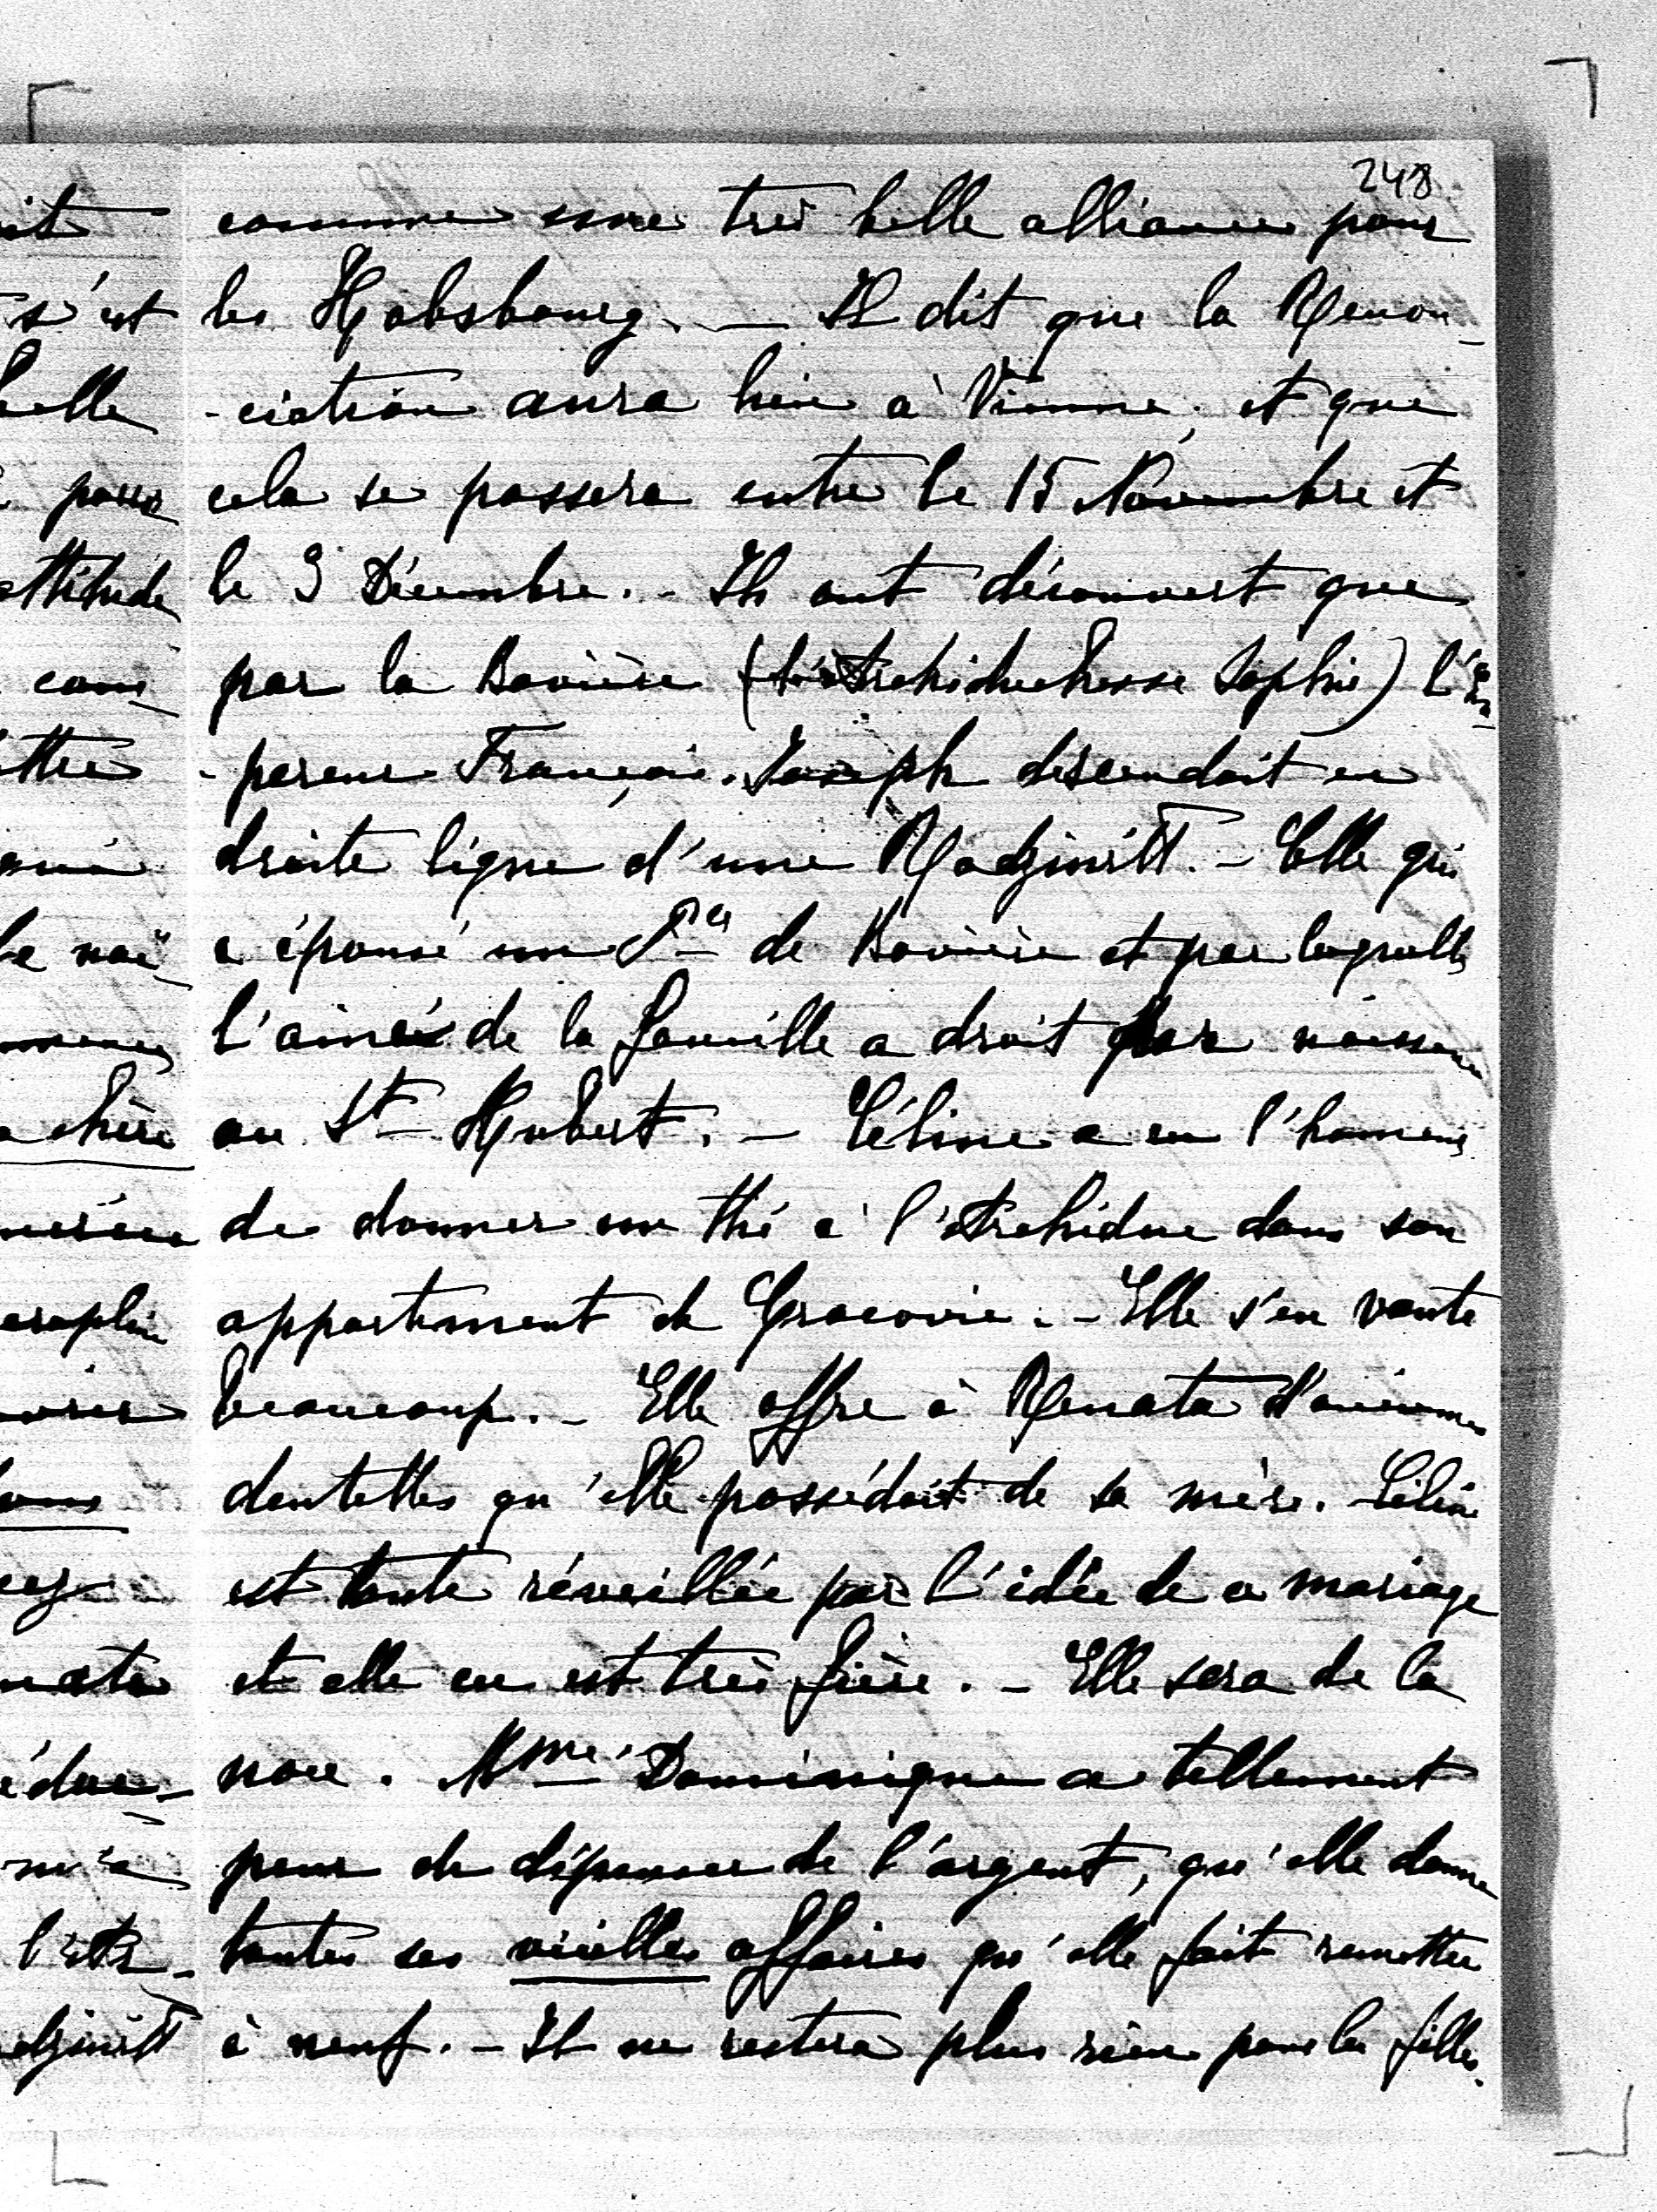 248
comme une très belle alliance pour
les Habsbourg. — Il dit que la Renon-
-ciation aura lieu à Vienne, et que
cela se passera entre le 15 Novembre et
le 3 Décembre. - Ils ont découvert que
par la Bavière (l'Archiduchesse Sophie) l'Em-
-pereur François-Joseph descendait en
droite ligne d'une Radziwill. - Celle qui
a épousé un Pce de Bavière et par laquelle
l'ainé de la famille a droit par naissance
au St Hubert. - Céline a eu l'honneur
de donner un thé à l'Archiduc dans son
appartement de Cracovie. - Elle s'en vante
beaucoup. - Elle offre à Renata d'anciennes
dentelles qu'elle possédait de sa mère. Céline
est toute réveillée par l'idée de ce mariage
et elle en est très fière. - Elle sera de la
noce. Mme Dominique a tellement
peur de dépenser de l'argent, qu'elle donne
toutes ses vieilles affaires qu'elle fait remettre
à neuf. - Il ne restera plus rien pour les filles.